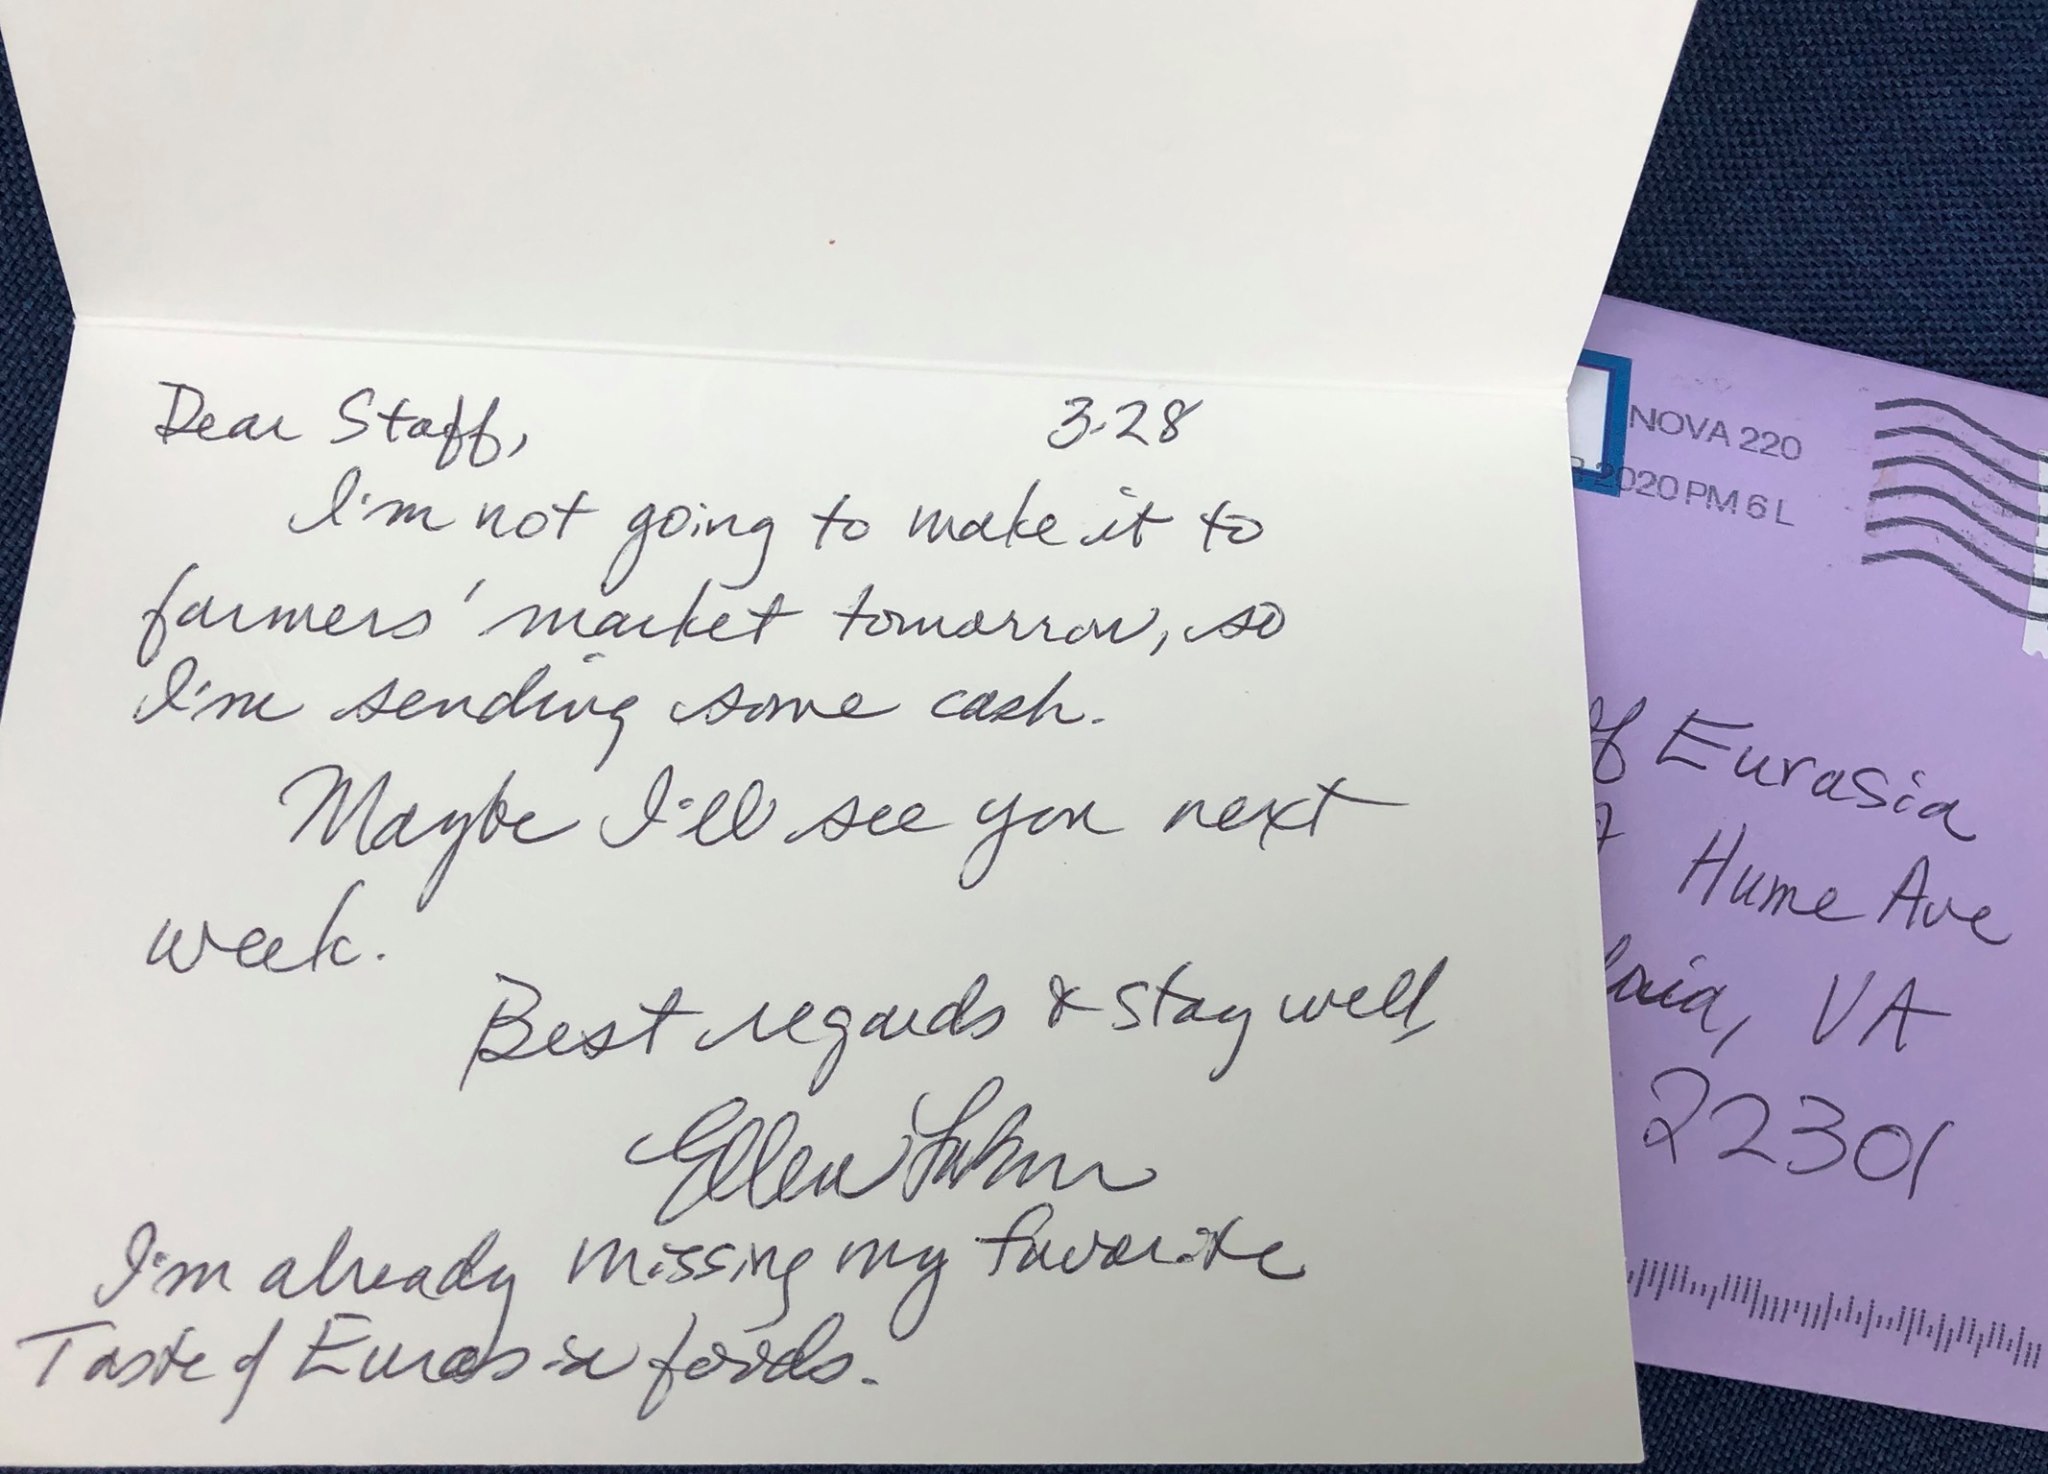 Dear Staff, 3.28
I'm not going to make it to
farmers' market tomorrow, so
I'm sending some cash.
Maybe I'll see you next
week.
Best regards & stay well,
Ellen
I'm already missing my favorite
Taste of Eurasia foods.
NOVA 220
2020 PM 6 L
of Eurasia
Hume Ave
VA
22301